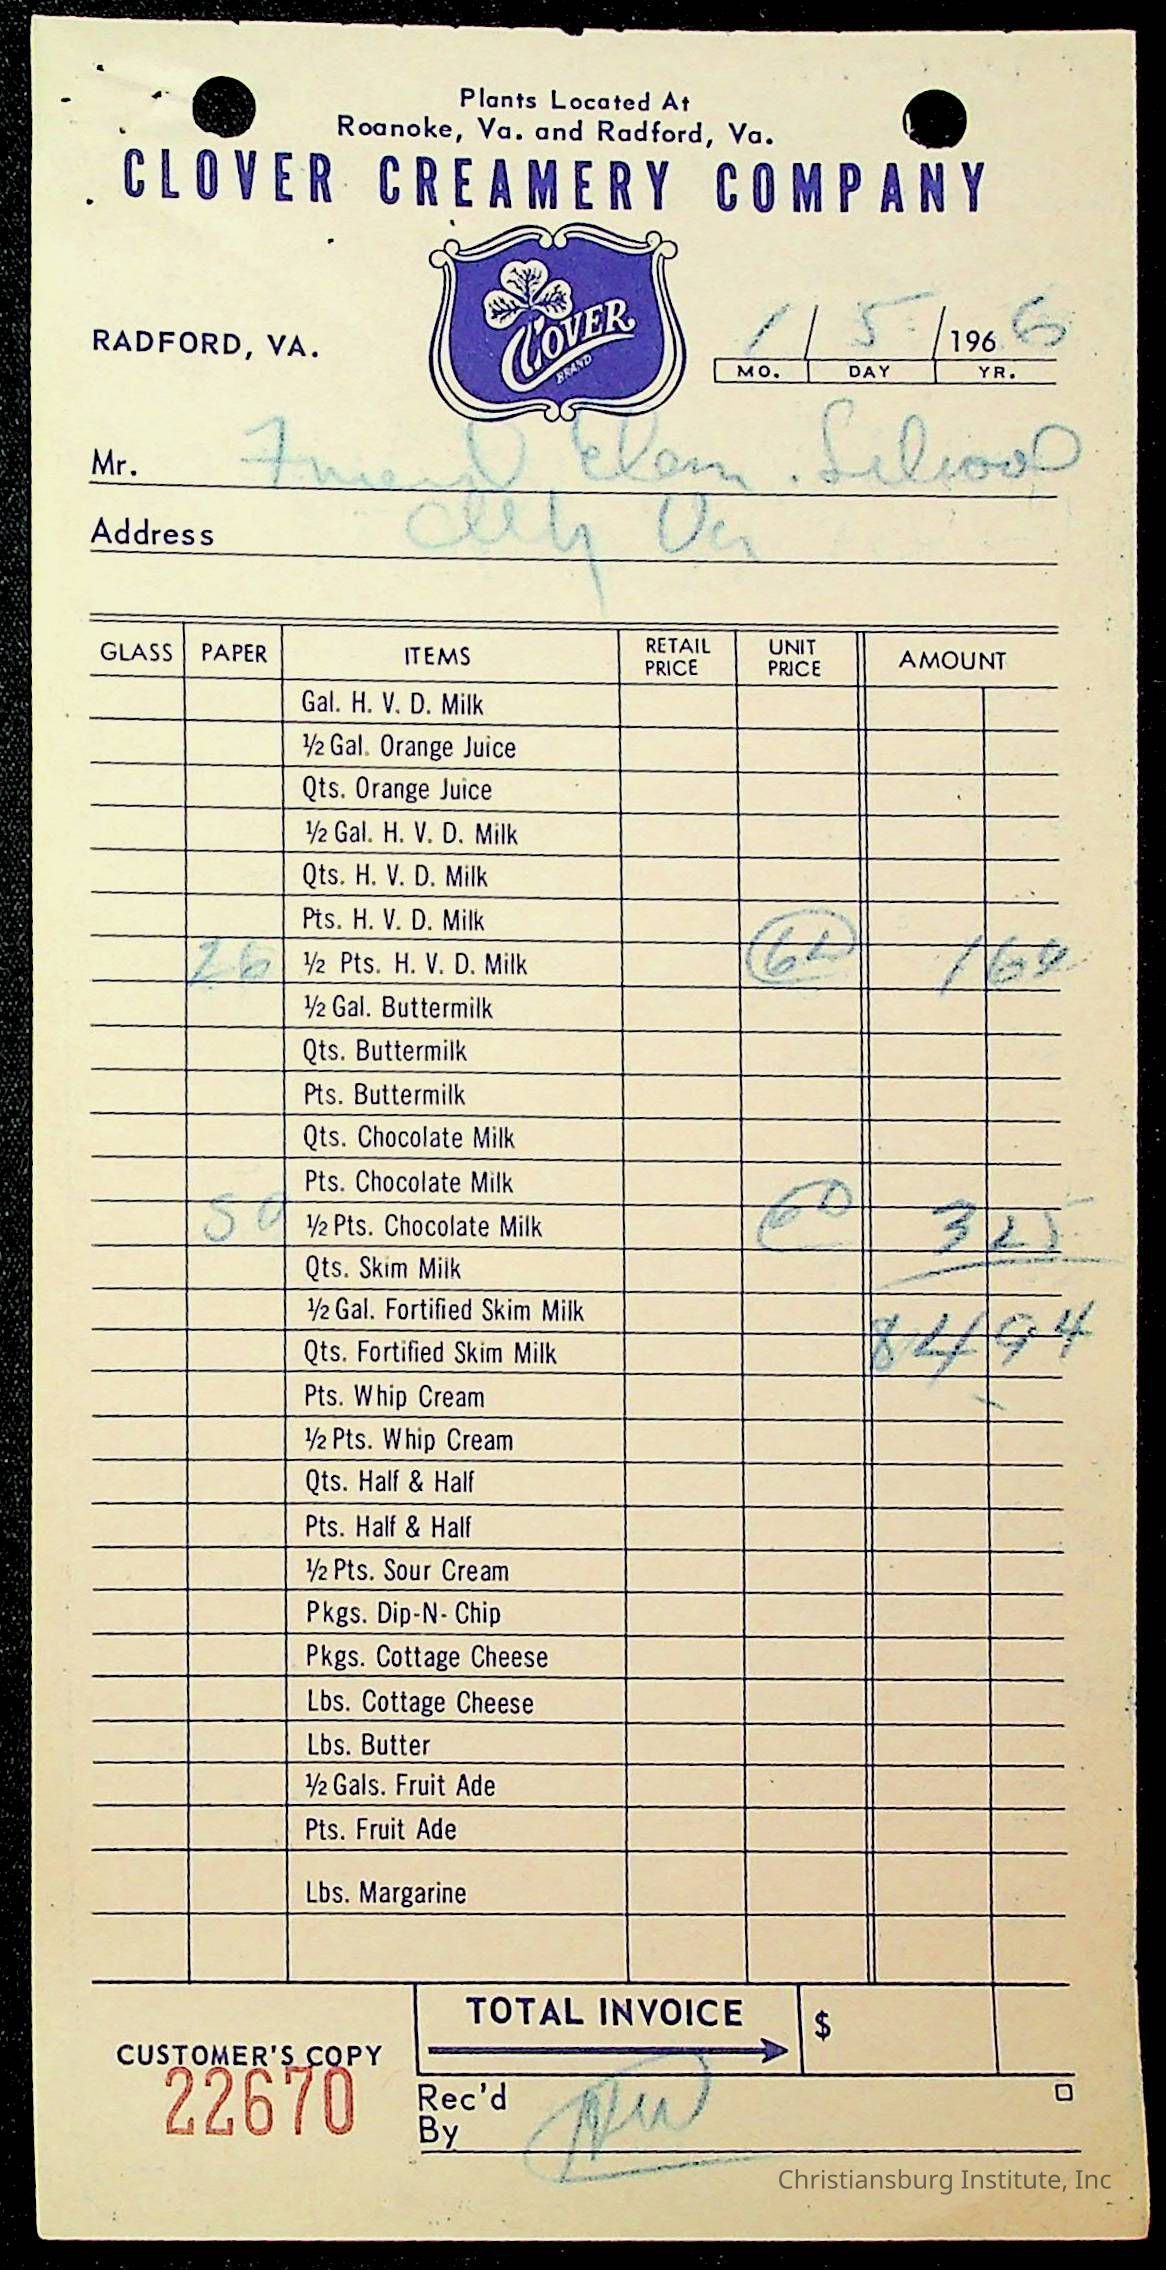 Plants Located At
Roanoke, Va. and Radford, Va.
CLOVER CREAMERY COMPANY
CLOVER
BRAND
RADFORD, VA.
1 / 5 / 1966
MO. DAY YR.
Mr. Friend Elem. School
Address City Va
GLASS PAPER ITEMS RETAIL PRICE UNIT PRICE AMOUNT
Gal. H. V. D. Milk
½ Gal. Orange Juice
Qts. Orange Juice
½ Gal. H. V. D. Milk
Qts. H. V. D. Milk
Pts. H. V. D. Milk
26 ½ Pts. H. V. D. Milk 1 69
½ Gal. Buttermilk
Qts. Buttermilk
Pts. Buttermilk
Qts. Chocolate Milk
Pts. Chocolate Milk
50 ½ Pts. Chocolate Milk 3 25
Qts. Skim Milk
½ Gal. Fortified Skim Milk
Qts. Fortified Skim Milk 4 94
Pts. Whip Cream
½ Pts. Whip Cream
Qts. Half & Half
Pts. Half & Half
½ Pts. Sour Cream
Pkgs. Dip-N-Chip
Pkgs. Cottage Cheese
Lbs. Cottage Cheese
Lbs. Butter
½ Gals. Fruit Ade
Pts. Fruit Ade
Lbs. Margarine
TOTAL INVOICE $
CUSTOMER'S COPY
22670
Rec'd
By
Christiansburg Institute, Inc